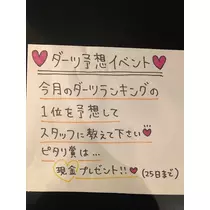 ダーツ予想イベント
今月のダーツランキングの
1位を予想して
スタッフに教えて下さい
ピタリ賞は…
現金プレゼント!!(25日まで)